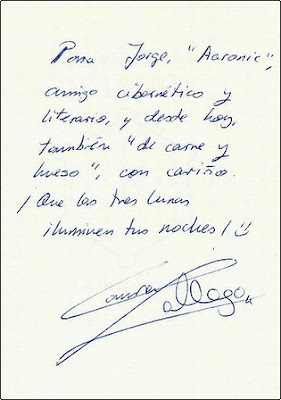 Para Jorge, "Aaronic",
amigo cibernético y
literario, y desde hoy,
también "de carne y
hueso", con cariño.
¡Que las tres lunas
iluminen tus noches!
Gallego